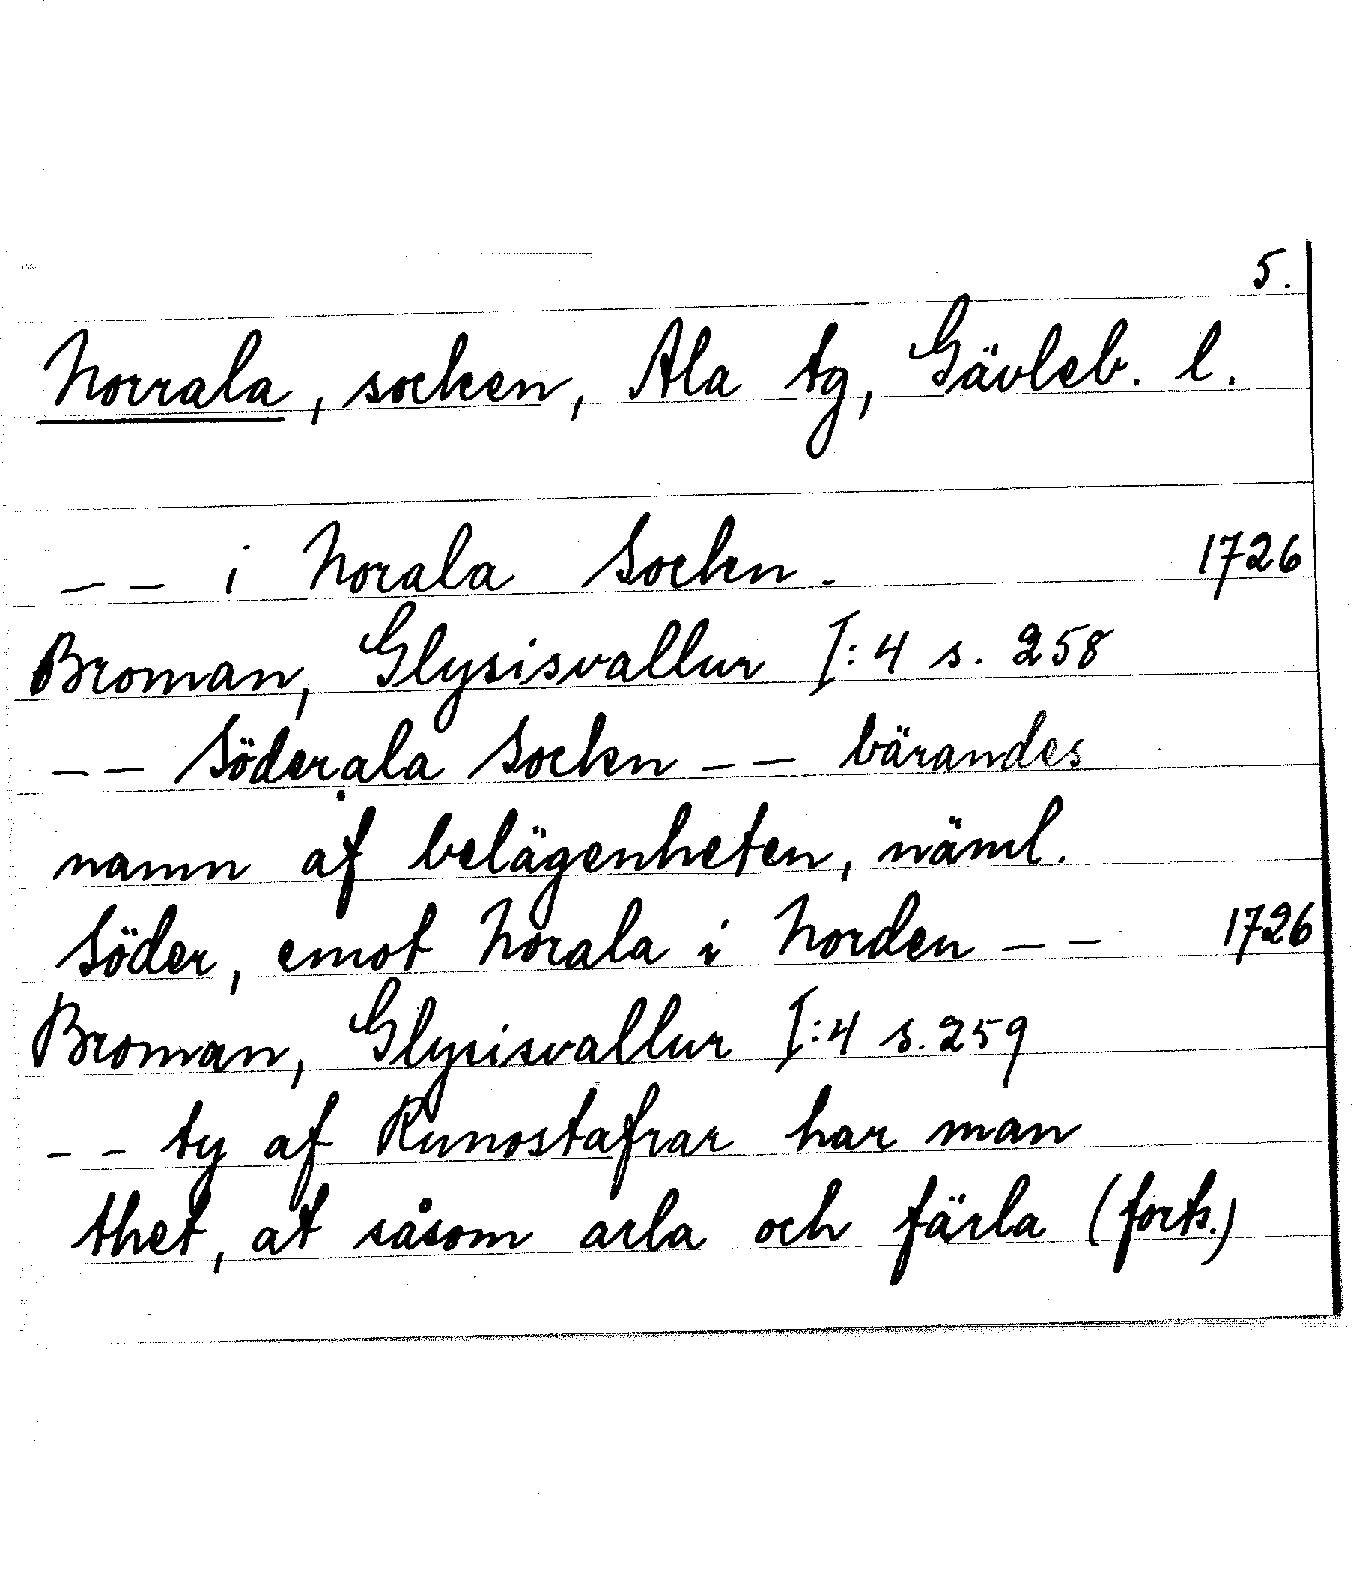 5.
Norrala, socken, Ala tg, Gävleb. l.
-- i Norala Sockn. 1726
Broman, Glysisvallur I:4 s. 258
-- Söderala Sockn -- bärandes
namn af belägenheten, näml.
Söder, emot Norala i Norden -- 1726
Broman, Glysisvallur I:4 s. 259
-- ty af Runostafrar har man
thet, at såsom arla och färla (forts.)